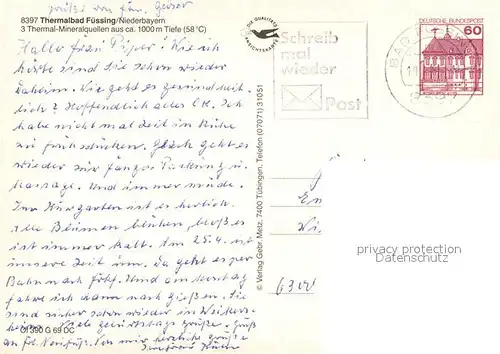 grüße von fam.
8397 Thermalbad Füssing/Niederbayern
3 Thermal-Mineralquellen aus ca. 1000 m Tiefe (58°C)
Hallo frau Piper! Wie ich
hörte sind Sie schon wieder
daheim. Wie geht es gesundheit
lich? Hoffendlich alles OK. Ich
habe nicht mal Zeit in Ruhe
zu frühstücken. Gleich geht es
wieder zur Fango Packung u.
Massage. Und immer müde.
Im Kurgarten ist es herlich.
alle Blumen blühen, bloß es
ist immer kalt. Am 25.4. ist
unsere Zeit um. Da geht es per
Bahn nach Und am
fahre ich dann nach gießen. Sie
sind sicher schon wieder in
Viele geburtstags grüße. Gruß
an Von mir herzliche grüße
01 390 G 69 DC
DIE QUALITÄTS
ANSICHTSKARTE
© Verlag Gebr. Metz, 7400 Tübingen, Telefon (07071) 31051
Schreib
mal
wieder
Post
DEUTSCHE BUNDESPOST
60
6300
privacy protection
Datenschutz